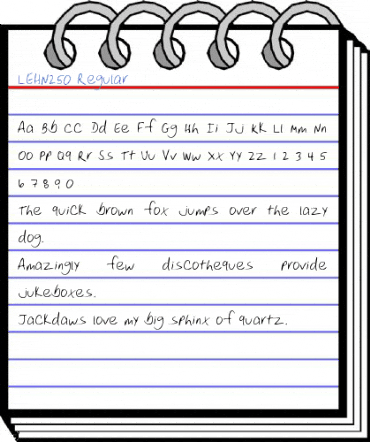 LEHN250 Regular
Aa Bb Cc Dd Ee Ff Gg Hh Ii Jj Kk Ll Mm Nn
Oo Pp Qq Rr Ss Tt Uu Vv Ww Xx Yy Zz 1 2 3 4 5
6 7 8 9 0
The quick brown fox jumps over the lazy
dog.
Amazingly few discotheques provide
jukeboxes.
Jackdaws love my big sphinx of quartz.